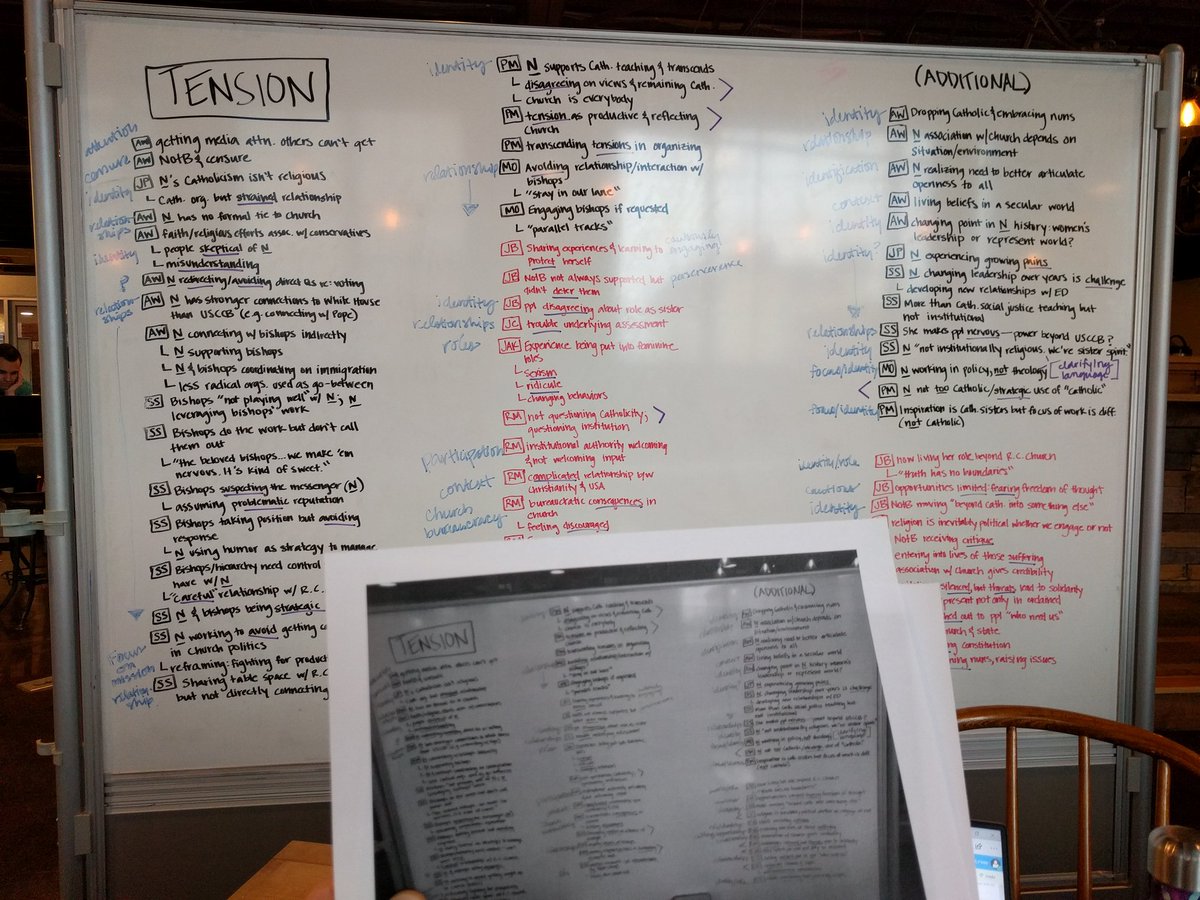 TENSION
attention
censure
identity
relation-
ships
identity
?
relation-
ships
Focus
on
mission
relation-
ship
AW getting media attn. others can't get
AW NOTB & censure
JP N's Catholicism isn't religious
└ Cath. org. but strained relationship
AW N has no formal tie to church
AW faith/religious efforts assoc. w/conservatives
└ people skeptical of N
└ misunderstanding
AW N redirecting/avoiding direct Qs re: voting
AW N has stronger connections to White House
than USCCB (e.g. connecting w/ Pope)
AW N connecting w/ bishops indirectly
└ N supporting bishops
└ N & bishops coordinating on immigration
└ less radical orgs. used as go-between
SS Bishops "not playing well" w/ N; N
leveraging bishops' work
SS Bishops do the work but don't call
them out
└ "the beloved bishops... we make 'em
nervous. It's kind of sweet."
SS Bishops suspecting the messenger (N)
└ assuming problematic reputation
SS Bishops taking position but avoiding
response
└ N using humor as strategy to manage
SS Bishops/hierarchy need control
have w/ N
└ "careful" relationship w/ R.C.
SS N & bishops being strategic
SS N working to avoid getting
in church politics
└ reframing: fighting for
SS Sharing table space w/ R.C.
but not directly connecting
identity
relationships
identity
relationships
roles
participation
context
church
bureaucracy
PM N supports Cath. teaching & transcends
└ disagreeing on views & remaining Cath.
└ church is everybody
PM tension as productive & reflecting
Church
PM transcending tensions in organizing
MO Avoiding relationship/interaction w/
bishops
└ "stay in our lane"
MO Engaging bishops if requested
└ "parallel tracks"
JB Sharing experiences & learning to
protect herself
cautiously
engaging?
JB NOTB not always supported but
didn't deter them
perseverence
JB ppl disagreeing about role as sister
JC trouble underlying assessment
JAK Experience being put into feminine
roles
└ sexism
└ ridicule
└ changing behaviors
RM not questioning Catholicity;
questioning institution
RM institutional authority welcoming
& not welcoming input
RM complicated relationship b/w
christianity & USA
RM bureaucratic consequences in
church
└ feeling discouraged
(ADDITIONAL)
identity
relationship
identification
context
identity
identity?
relationships
identity
focus/identity
focus/identity
identity/role
cautious
identity
AW Dropping Catholic & embracing nuns
AW N association w/church depends on
situation/environment
AW N realizing need to better articulate
openness to all
AW living beliefs in a secular world
AW changing point in N history: women's
leadership or represent world?
JP N experiencing growing pains
SS N changing leadership over years is challenge
└ developing new relationships w/ ED
SS More than Cath. social justice teaching but
not institutional
SS She makes ppl nervous—power beyond USCCB?
SS N "not institutionally religious. we're sister spirit."
MO N working in policy, not theology [clarifying
language]
PM N not too Catholic/strategic use of "catholic"
PM Inspiration is Cath. sisters but focus of work is diff.
(not Catholic)
JB now living her role beyond R.C. church
└ "truth has no boundaries"
JB opportunities limited: fearing freedom of thought
JB NOTB moving "beyond Cath. into something else"
religion is inevitably political whether we engage or not
NOTB receiving critique
entering into lives of those suffering
association w/ church gives credibility
silenced, but threats lead to solidarity
present not only in ordained
out to ppl "who need us"
church & state
constitution
nuns, raising issues
TENSION
(ADDITIONAL)